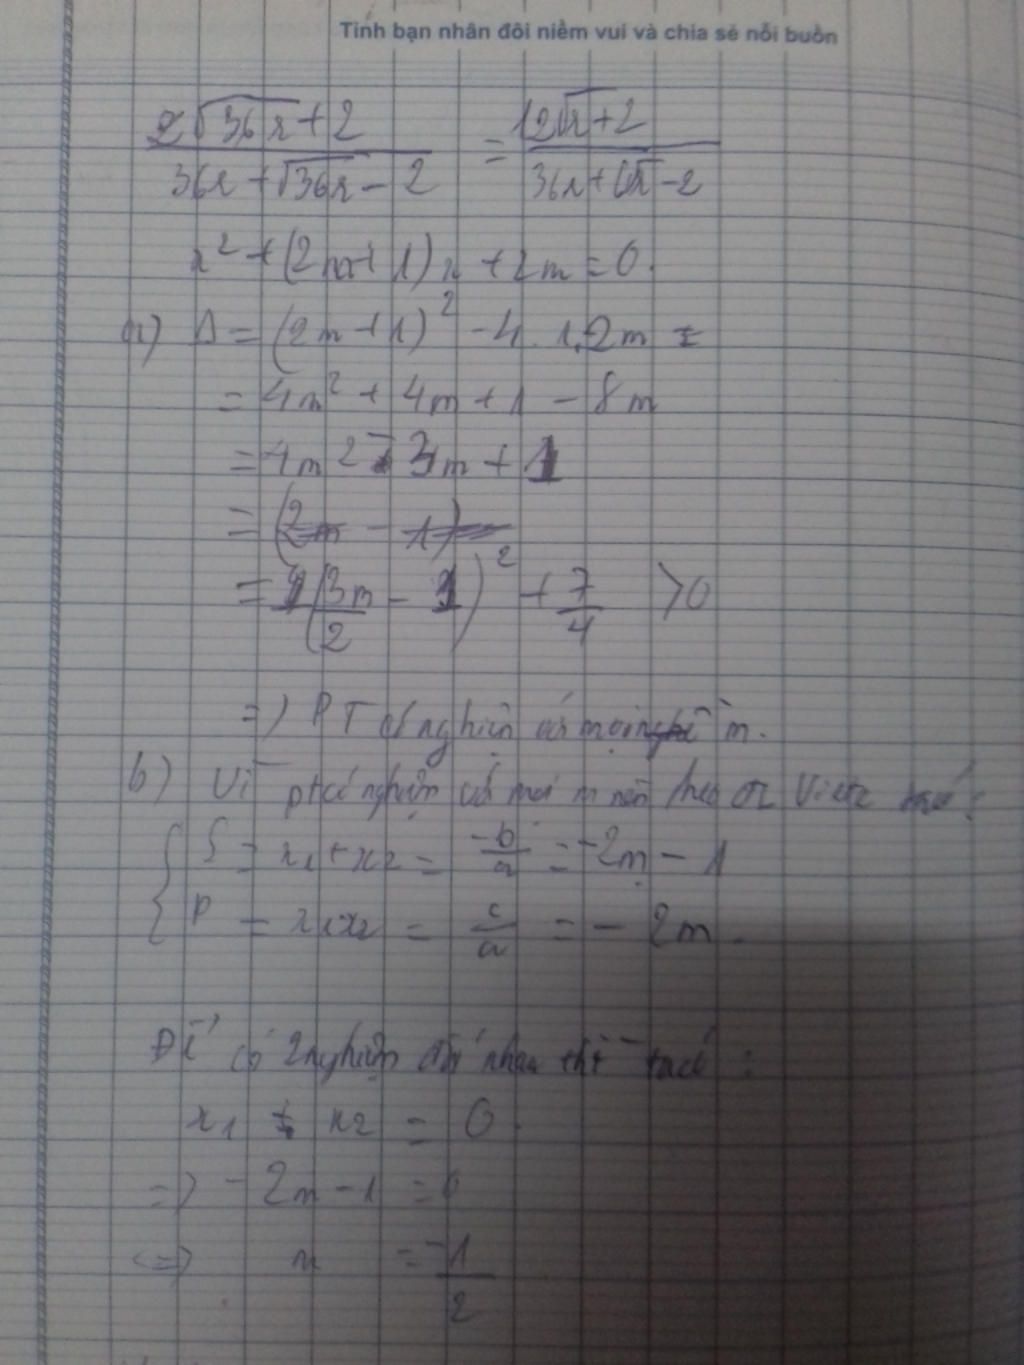 Tình bạn nhân đôi niềm vui và chia sẻ nỗi buồn
2√36x + 2 / 36x + √36x - 2 = 12√x + 2 / 36x + 6√x - 2
x² + (2m + 1)x + 2m = 0.
a) Δ = (2m + 1)² - 4.1.2m =
= 4m² + 4m + 1 - 8m
= 4m² - 3m + 1
= (2m - 1)
= (3m/2 - 1)² + 7/4 > 0
=) PT có nghiệm với mọi m.
b) Vì pt có nghiệm với mọi m nên theo Viet :
S = x1 + x2 = -b/a = -2m - 1
P = x1.x2 = c/a = - 2m.
Để có 2 nghiệm đối nhau thì ta có :
x1 + x2 = 0.
=) - 2m - 1 = 0
<=> m = -1/2